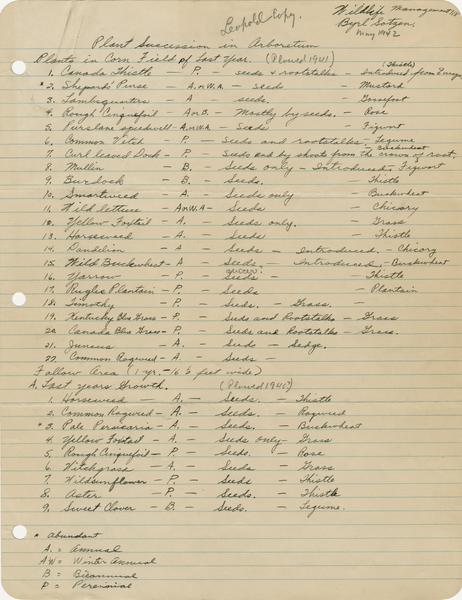 Leopold Copy.
Wildlife Management 118
Byrl Sotzen.
May 1942
Plant Succession in Arboretum
Plants in Corn Field of Last Year. (Plowed 1941)
1. Canada Thistle - P. - seeds & rootstalks - Introduced from Europe (Thistle)
* 2. Shepards Purse - A.orW.A. - seeds - Mustard
3. Lambsquarters - A - seeds. - Goosefoot
4. Rough Cinquefoil - AorB. - Mostly by seeds. - Rose
5. Purslane speedwell - A.orW.A - Seeds - Figwort
6. Common Vetch - P. - Seeds and rootstalks - Legume
7. Curl leaved Dock - P. - Seeds and by shoots from the crown of root. - Buckwheat
8. Mullin - B. - Seeds only - Introduced, Figwort
9. Burdock - B. - Seeds. - Thistle
10. Smartweed - A. - Seeds only - Buckwheat
11. Wild lettuce - AorW.A - Seeds - Chicory
12. Yellow Foxtail - A. - Seeds only. - Grass
13. Horseweed - A. - Seeds - Thistle
14. Dandelion - A - Seeds - Introduced - Chicory
15. Wild Buckwheat - A - Seeds. - Introduced, - Buckwheat
16. Yarrow - P. - Seeds - Thistle
17. Rugles Plantain - P. - Seeds - Plantain
18. Timothy - P. - Seeds. - Grass. -
19. Kentucky Blue Grass - P. - Seeds and Rootstalks - Grass
20. Canada Blue Grass - P. - Seeds and Rootstalks - Grass.
21. Juncus - A. - Seeds - Sedge.
22. Common Ragweed - A. - Seeds -
Fallow Area (1 yr. - 16½ feet wide)
A. Last years Growth. (Plowed 1940)
1. Horseweed - A. - Seeds. - Thistle
2. Common Ragweed - A. - Seeds. - Ragweed
* 3. Pale Persicaria - A. - Seeds. - Buckwheat
4. Yellow Foxtail - A. - Seeds only - Grass
5. Rough Cinquefoil - P. - Seeds - Rose
6. Witchgrass - A. - Seeds - Grass
7. Wild sunflower - P. - Seeds - Thistle
8. Aster - P. - Seeds. - Thistle
9. Sweet Clover - B. - Seeds. - Legume.
* Abundant
A. = Annual
AW = Winter Annual
B = Biannual
P = Perennial